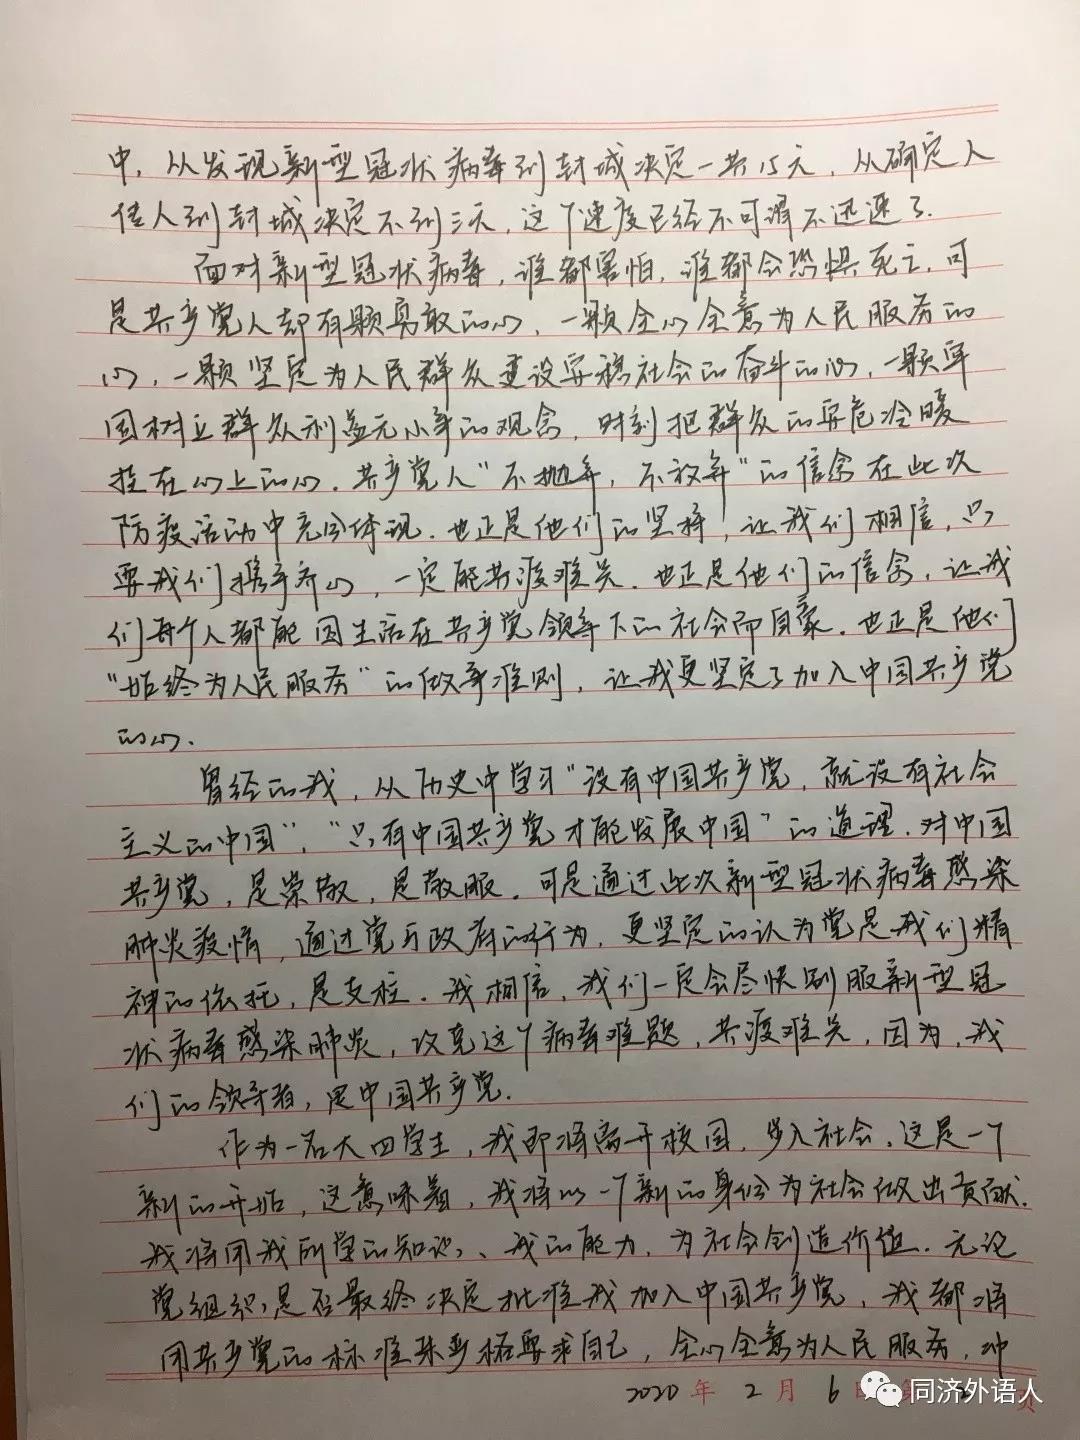 中，从发现新型冠状病毒到封城决定一共15天，从确定人
传人到封城决定不到三天，这个速度已经不可谓不迅速了.
面对新型冠状病毒，谁都害怕，谁都会恐惧死亡，可
是共产党人却有颗勇敢的心，一颗全心全意为人民服务的
心，一颗坚定为人民群众建设安稳社会的奋斗的心，一颗牢
固树立群众利益无小事的观念，时刻把群众的安危冷暖
挂在心上的心. 共产党人“不抛弃，不放弃”的信念在此次
防疫活动中充分体现. 也正是他们的坚持，让我们相信，只
要我们携手齐心，一定能共渡难关. 也正是他们的信念，让我
们每个人都能因生活在共产党领导下的社会而自豪. 也正是他们
“始终为人民服务”的做事准则，让我更坚定了加入中国共产党
的心.
曾经的我，从历史中学习“没有中国共产党，就没有社会
主义的中国”，“只有中国共产党才能发展中国”的道理. 对中国
共产党，是崇敬，是敬服. 可是通过此次新型冠状病毒感染
肺炎疫情，通过党与政府的行为，更坚定的认为党是我们精
神的依托，是支柱. 我相信，我们一定会尽快克服新型冠
状病毒感染肺炎，攻克这个病毒难题，共渡难关，因为，我
们的领导者，是中国共产党.
作为一名大四学生，我即将离开校园，步入社会. 这是一个
新的开始，这意味着，我将以一个新的身份为社会做出贡献.
我将用我所学的知识、我的能力，为社会创造价值. 无论
党组织是否最终决定批准我加入中国共产党，我都将
用共产党的标准来严格要求自己，全心全意为人民服务，冲
2020年 2月 6日 第 页
同济外语人